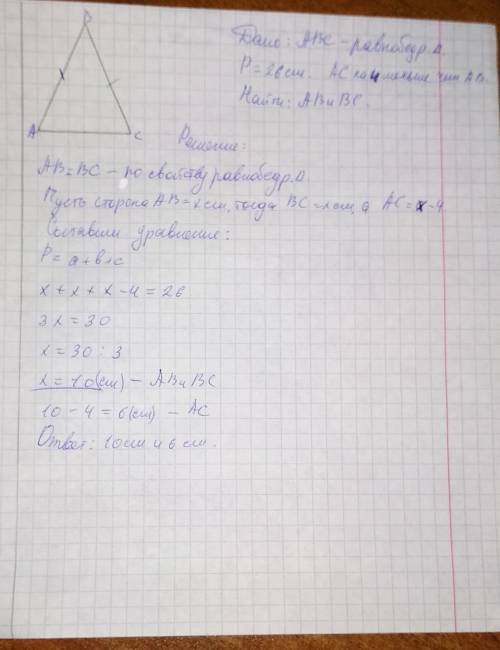 B
A
C
Дано: ABC - равнобедр. Δ.
P = 26 см. AC на 4 меньше чем AB.
Найти: AB и BC.
Решение:
AB = BC - по свойству равнобедр. Δ.
Пусть сторона AB = x см, тогда BC = x см, а AC = x - 4
Составим уравнение:
P = a + b + c
x + x + x - 4 = 26
3x = 30
x = 30 : 3
x = 10 (см) - AB и BC
10 - 4 = 6 (см) - AC
Ответ: 10 см и 6 см.